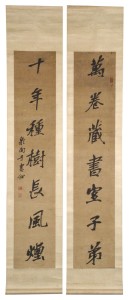 萬卷藏書宜子弟
十年種樹長風煙